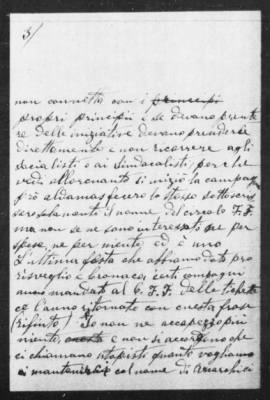 3/
non connetta con i principi
propri principii e se devano prende
re delle iniziative devano prenderle
direttamente e non ricorrere agli
socialisti o ai sindacalisti, perche
vedi allorquanto si iniziò la campag
pro aldamas fecero lo stesso sottoscris
sero solamente il nome del circolo F. F.
ma non se ne sono interessato ne per
spese, ne per niente, ed è uno
l'ultima festa che abbiamo dato pro
risveglio e Cronaca, certi compagni
anno mandato al C. F. F. delle tichette
ce l'anno ritornato con questa frase
(rifiuto) Io non ne accapezzo più
niente, e non si accordino che
ci chiamano utopisti quanto vogliamo
ci mantenere col nome di Anarchici